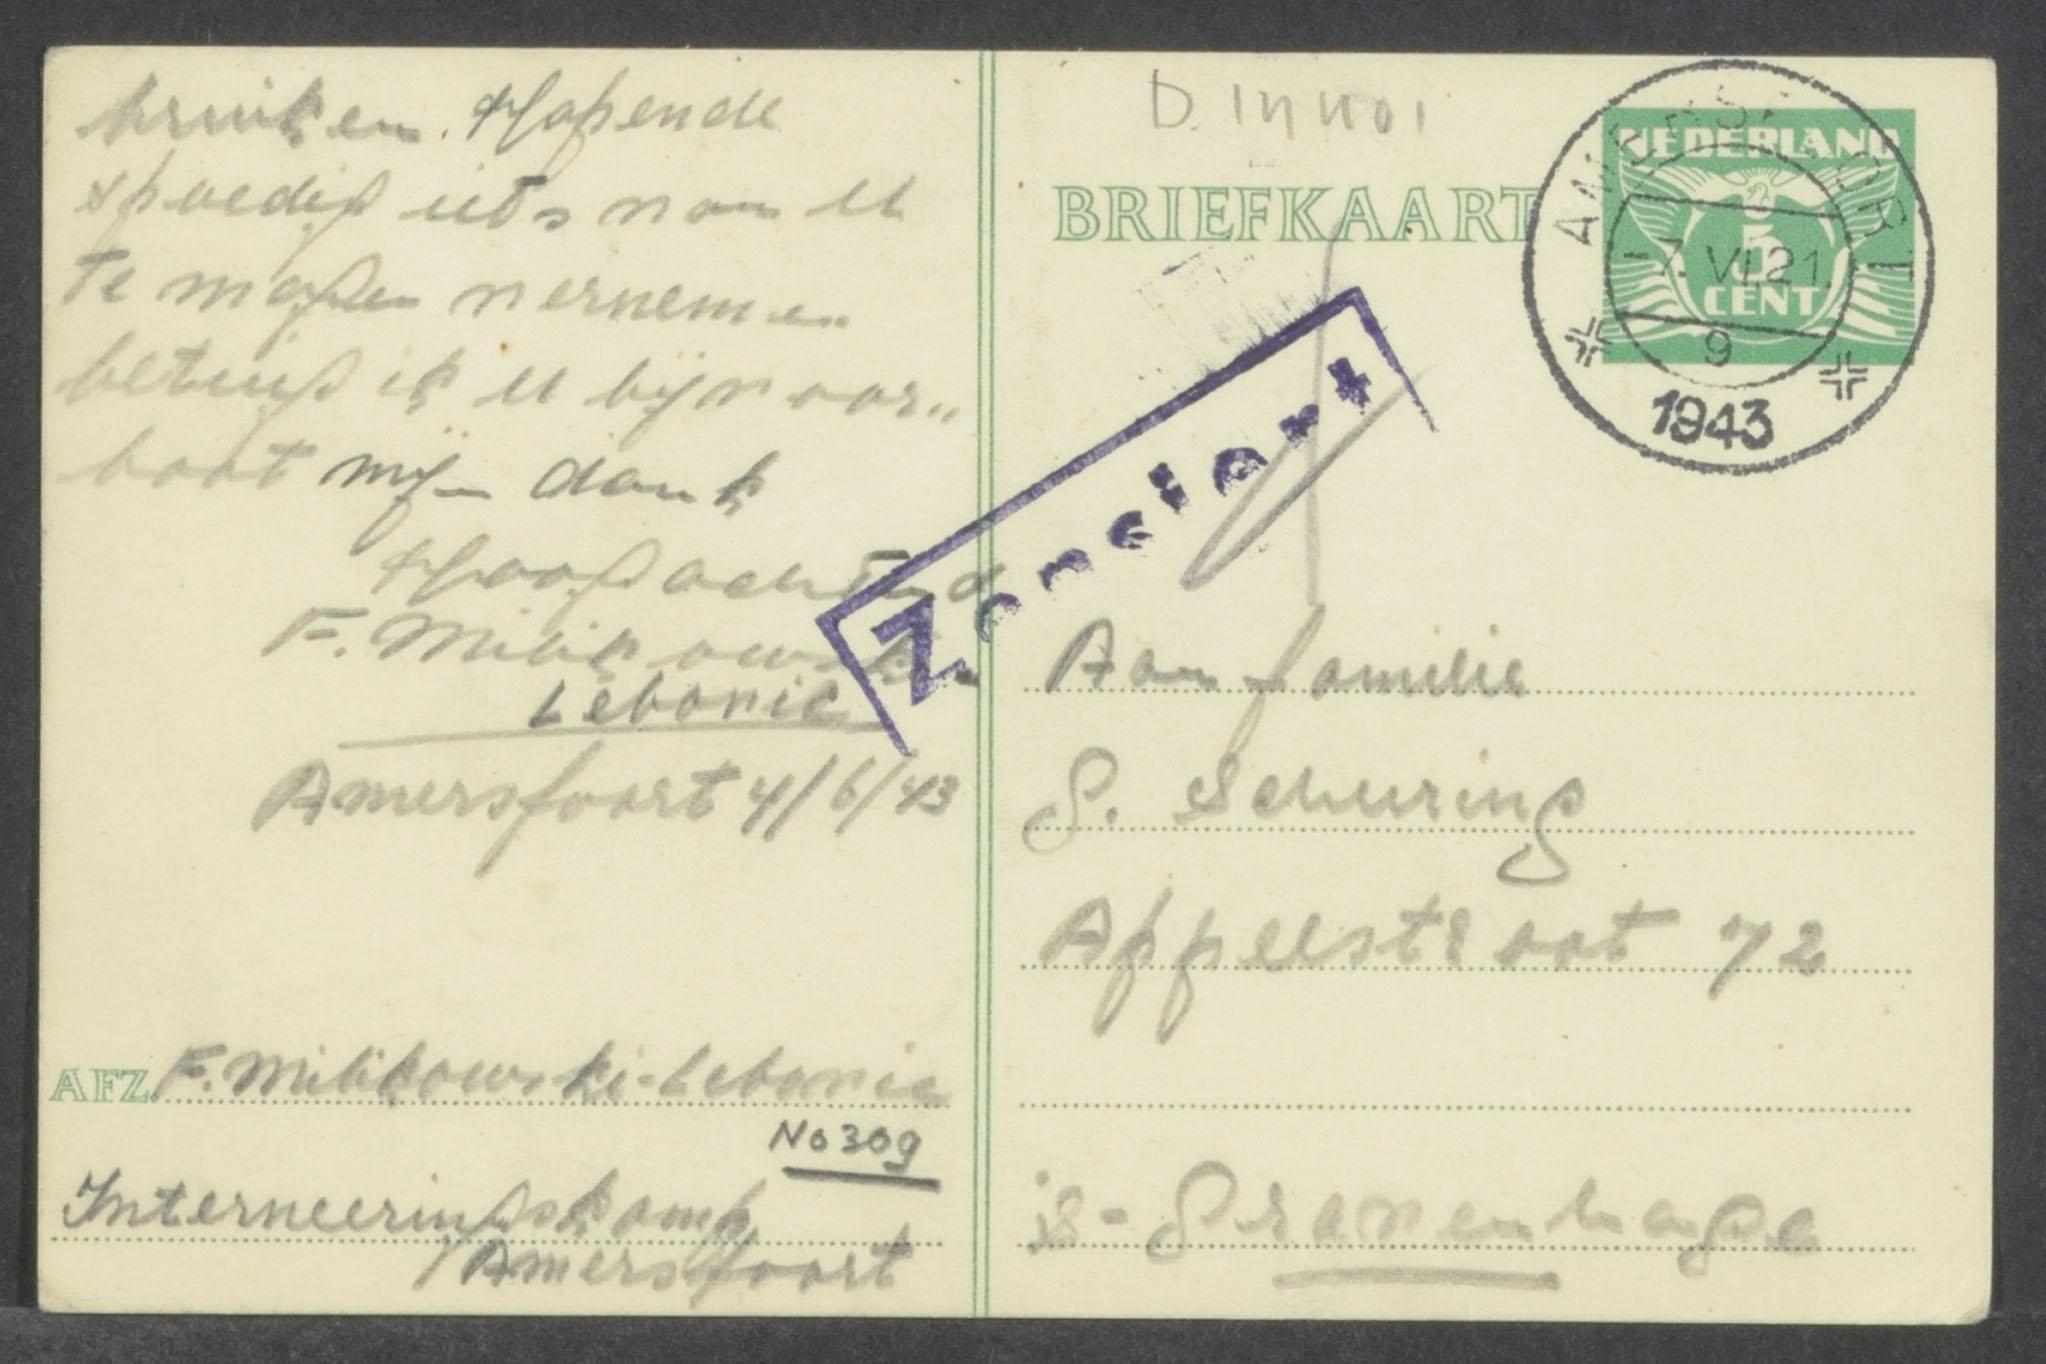 bruiken. Hopende
spoedig iets van U
te mogen vernemen
betuig ik U bijvoor„
baat mijn dank
Hoogachtend
F. Milikowski
Lebovic
Amersfoort 4/6/43
AFZ. F. Milikowski-Lebovic
No 309
Interneeringskamp
Amersfoort
BRIEFKAART
NEDERLAND
5
CENT
AMERSFOORT
-7. VI. 21.
9
1943
Zensiert
Aan familie
S. Schuring
Appelstraat 72
is-Gravenhage